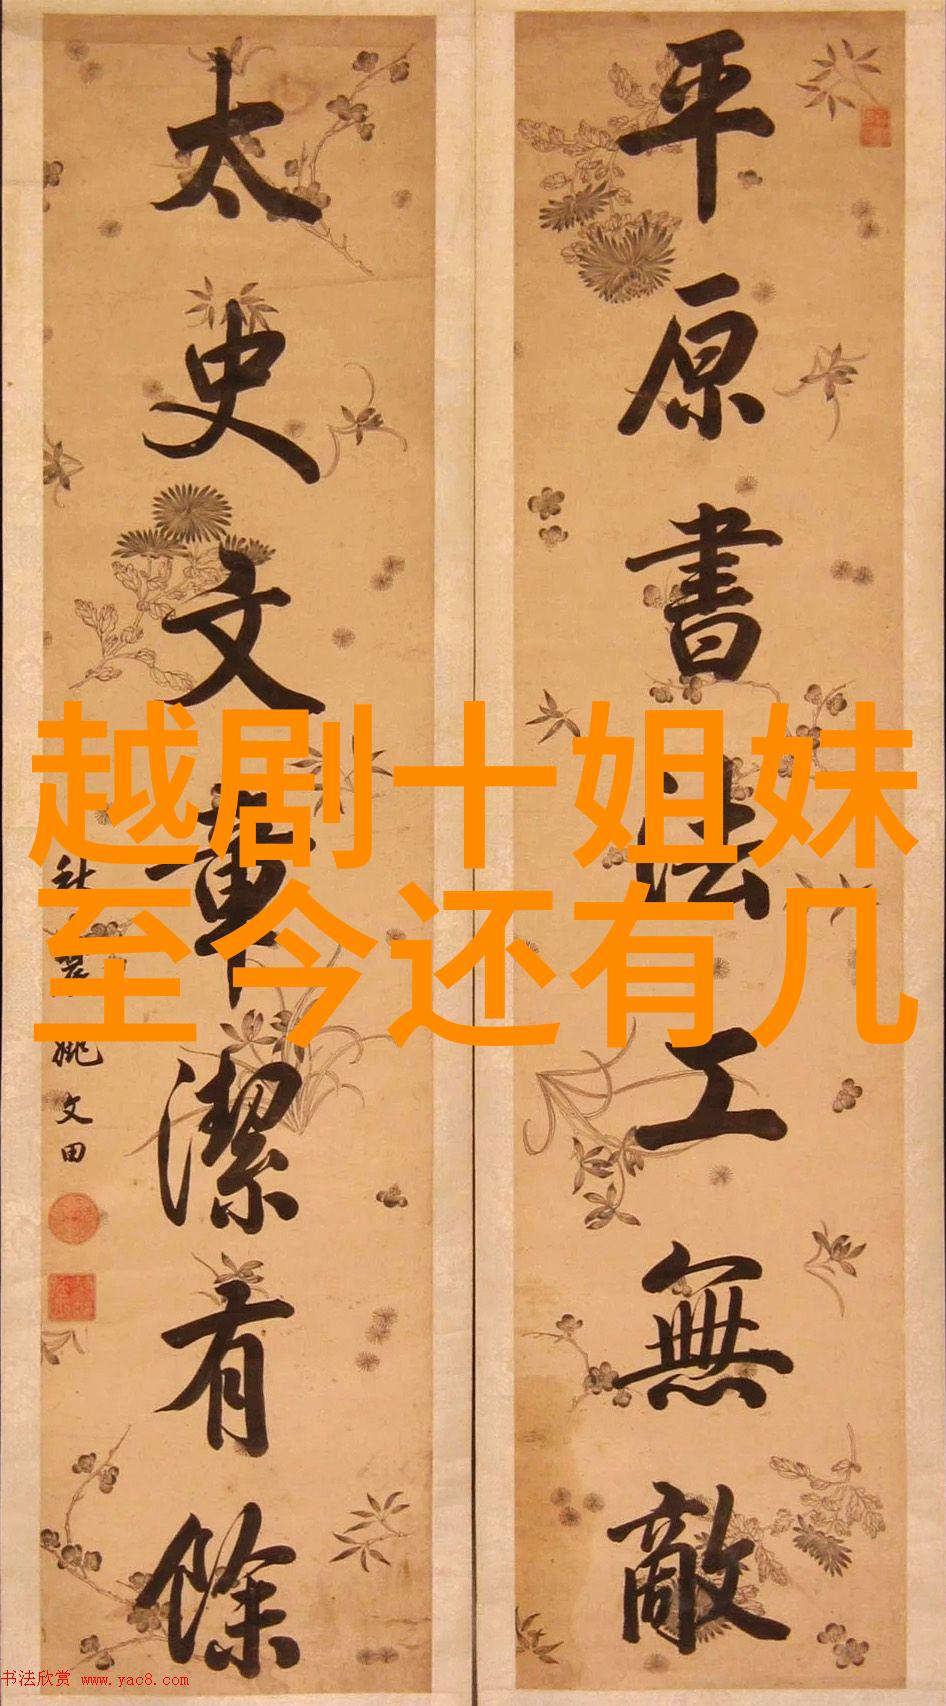 平原書法工無敵
太史文章潔有餘
姚文田
越剧十姐妹
至今还有几
书法欣赏 www.yac8.com